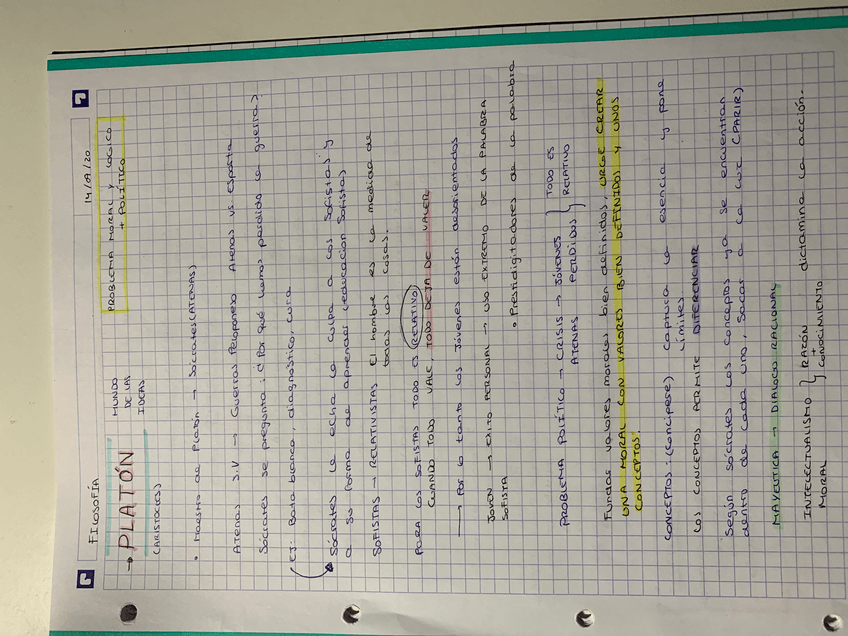 FILOSOFÍA
14/09/20
→ PLATÓN
(ARISTOCLES)
MUNDO
DE LAS
IDEAS
PROBLEMA MORAL Y LÓGICO
+ POLÍTICO
• Maestro de Platón → Sócrates (ATENAS)
Atenas S.V → Guerras Peloponeso Atenas vs Esparta
Sócrates se pregunta: ¿Por qué hemos perdido la guerra?
EJ: Bata blanca, diagnóstico, cura.
Sócrates le echa la culpa a los Sofistas y
a su forma de aprender (educación Sofista)
SOFISTAS → RELATIVISTAS El hombre es la medida de
todas las cosas.
PARA LOS SOFISTAS TODO ES RELATIVO
CUANDO TODO VALE, TODO DEJA DE VALER
→ Por lo tanto los jóvenes están desorientados
JOVEN → EXITO PERSONAL → USO EXTREMO DE LA PALABRA
SOFISTA
• Prestidigitadores de la palabra
PROBLEMA POLÍTICO → CRISIS → JÓVENES } TODO ES
ATENAS PERDIDOS } RELATIVO
Fundar valores morales bien definidos, URGE CREAR
UNA MORAL CON VALORES BIEN DEFINIDOS Y UNOS
CONCEPTOS.
CONCEPTOS: (Concípese) captura la esencia y pone
límites.
LOS CONCEPTOS PERMITE DIFERENCIAR
Según Sócrates los conceptos ya se encuentran
dentro de cada uno, sacar a la luz (PARIR)
MAYEUTICA → DIALOGO RACIONAL
INTELECTUALISMO } RAZÓN dictamina la acción.
MORAL + CONOCIMIENTO